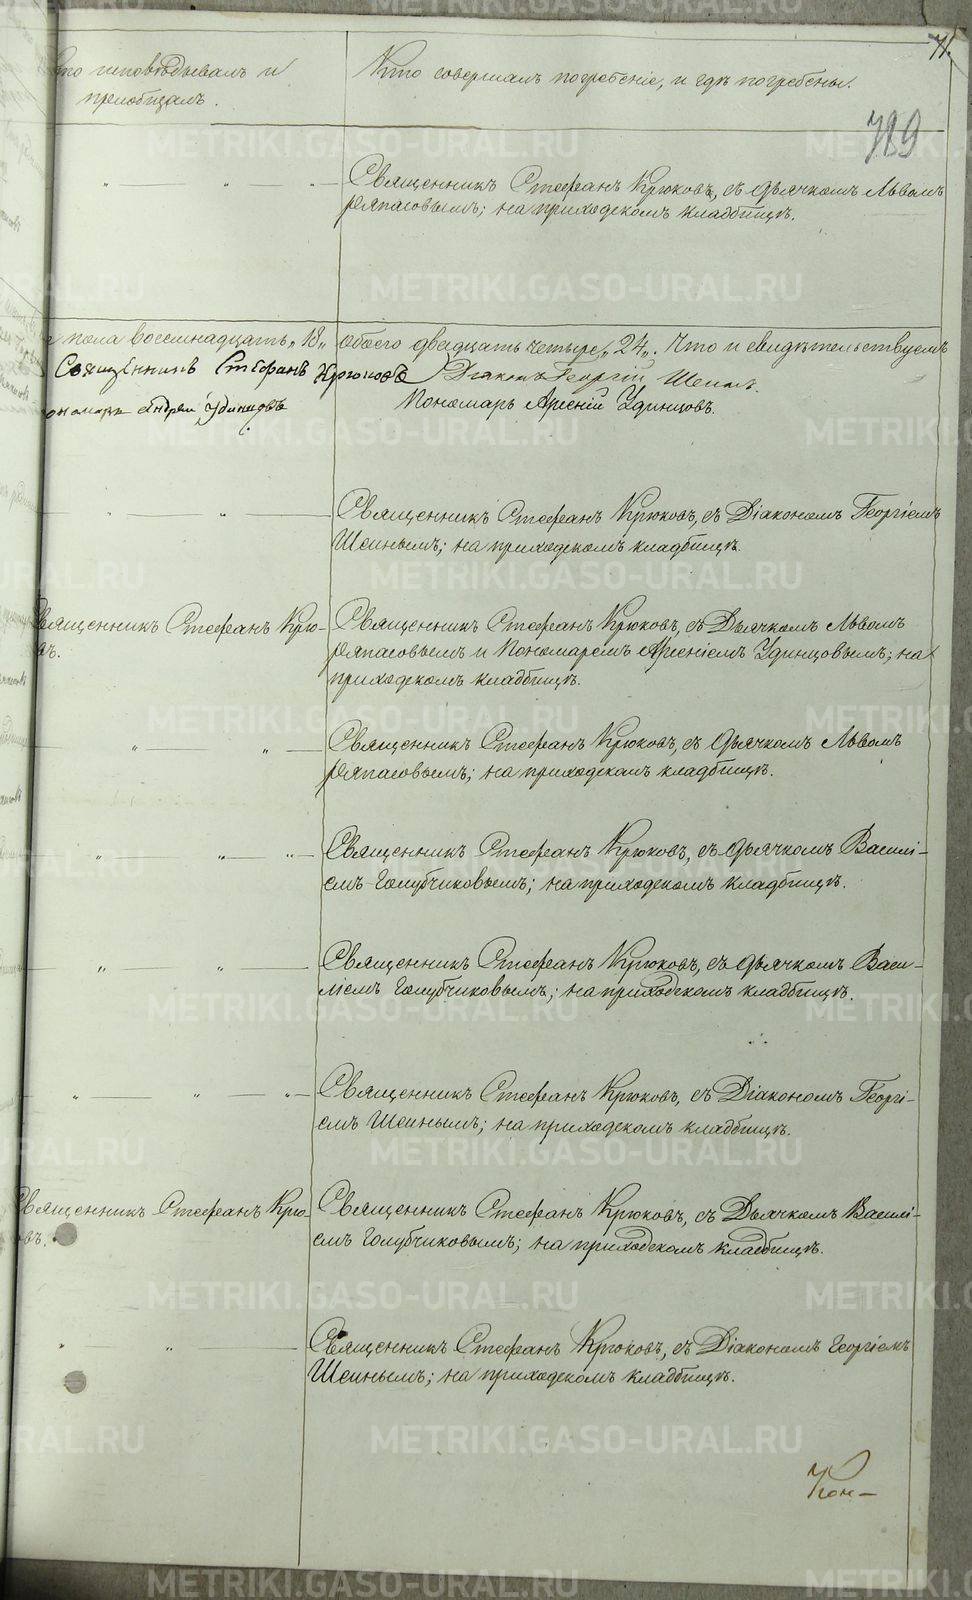 71.
то исповѣдывалъ и
пріобщалъ.
Кто совершалъ погребеніе, и гдѣ погребены.
789
Священникъ Стефанъ Крюковъ, съ дьячкомъ Львомъ
Ряпасовымъ; на приходскомъ кладбищѣ.
пола восемнадцать „18„ обоего двадцать четыре „24„. Что и свидѣтельствуемъ
Священникъ Стефанъ Крюковъ Діаконъ Георгій Шеинъ.
ономарь Андрей Удинцовъ Пономарь Арсеній Удинцовъ.
Священникъ Стефанъ Крюковъ, съ Діакономъ Георгіемъ
Шеинымъ; на приходскомъ кладбищѣ.
вященникъ Стефанъ Крю-
въ.
Священникъ Стефанъ Крюковъ, съ Дьячкомъ Львомъ
Ряпасовымъ и Пономаремъ Арсеніемъ Удинцовымъ; на
приходскомъ кладбищѣ.
Священникъ Стефанъ Крюковъ, съ дьячкомъ Львомъ
Ряпасовымъ; на приходскомъ кладбищѣ.
Священникъ Стефанъ Крюковъ, съ дьячкомъ Василі-
емъ Голубчиковымъ; на приходскомъ кладбищѣ.
Священникъ Стефанъ Крюковъ, съ дьячкомъ Васи-
ліемъ Голубчиковымъ; на приходскомъ кладбищѣ.
Священникъ Стефанъ Крюковъ, съ Діакономъ Георгі-
емъ Шеинымъ; на приходскомъ кладбищѣ.
вященникъ Стефанъ Крю-
овъ.
Священникъ Стефанъ Крюковъ, съ Дьячкомъ Василі-
емъ Голубчиковымъ; на приходскомъ кладбищѣ.
Священникъ Стефанъ Крюковъ, съ Діакономъ Георгіемъ
Шеинымъ; на приходскомъ кладбищѣ.
METRIKI.GASO-URAL.RU